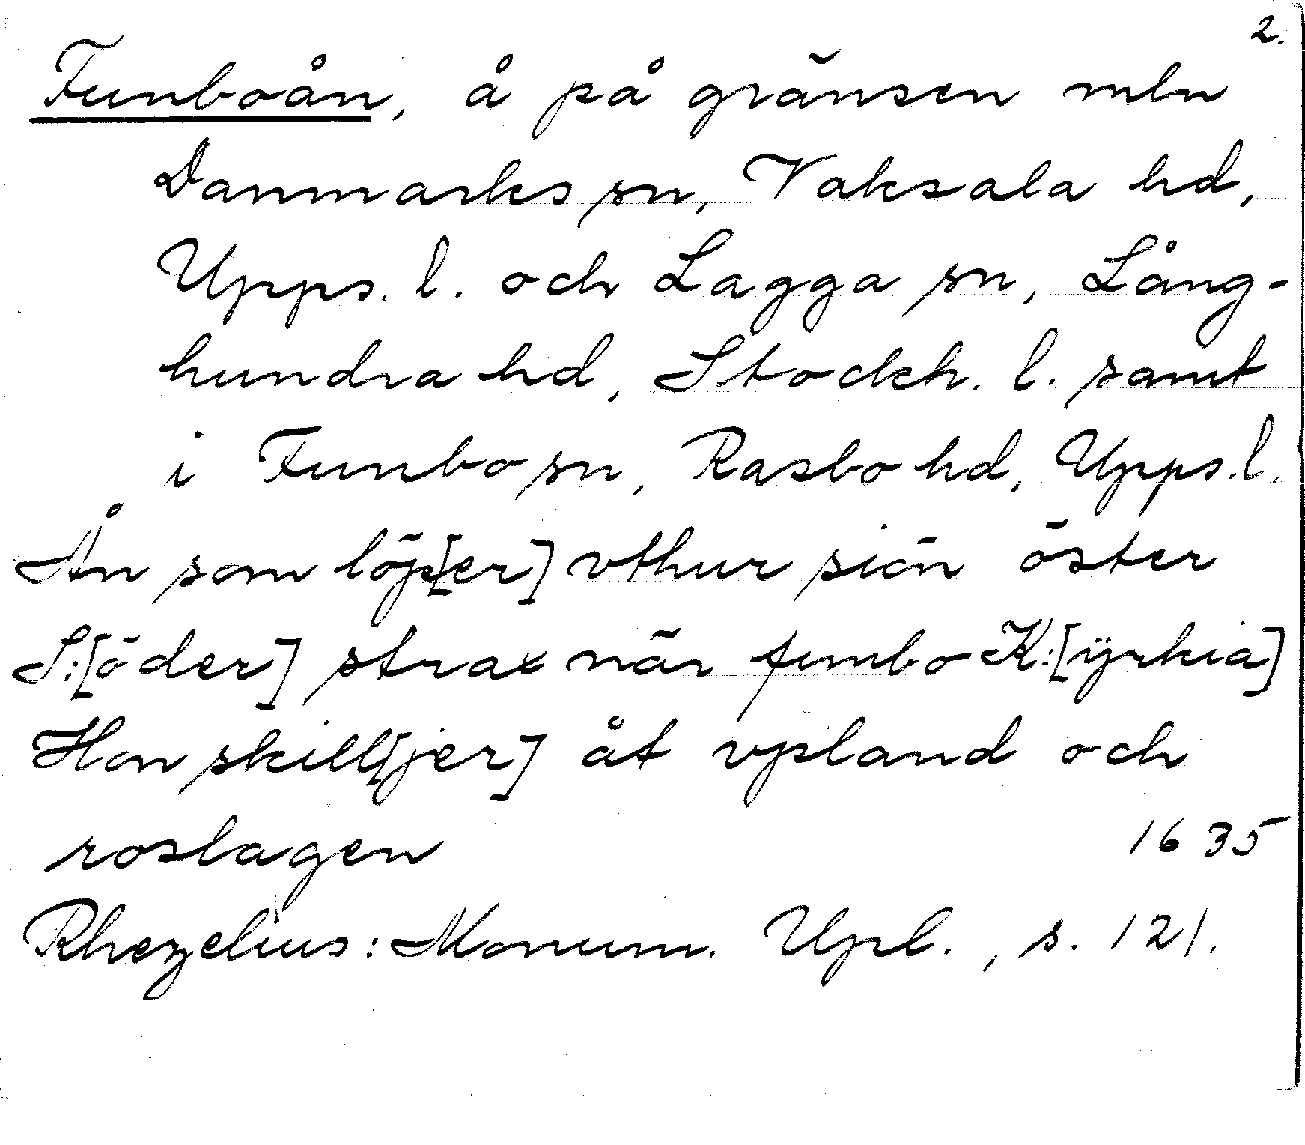 2.
Funboån, å på gränsen mln
Danmarks sn, Vaksala hd,
Upps. l. och Lagga sn, Lång-
hundra hd, Stockh. l. samt
i Funbo sn, Rasbo hd, Upps. l.
Ån som löp[er] vthur siön öster
S:[öder] strax när funbo K:[ÿrkia]
Hon skill[jer] åt vpland och
roslagen 1635
Rhezelius: Monum. Upl., s. 121.